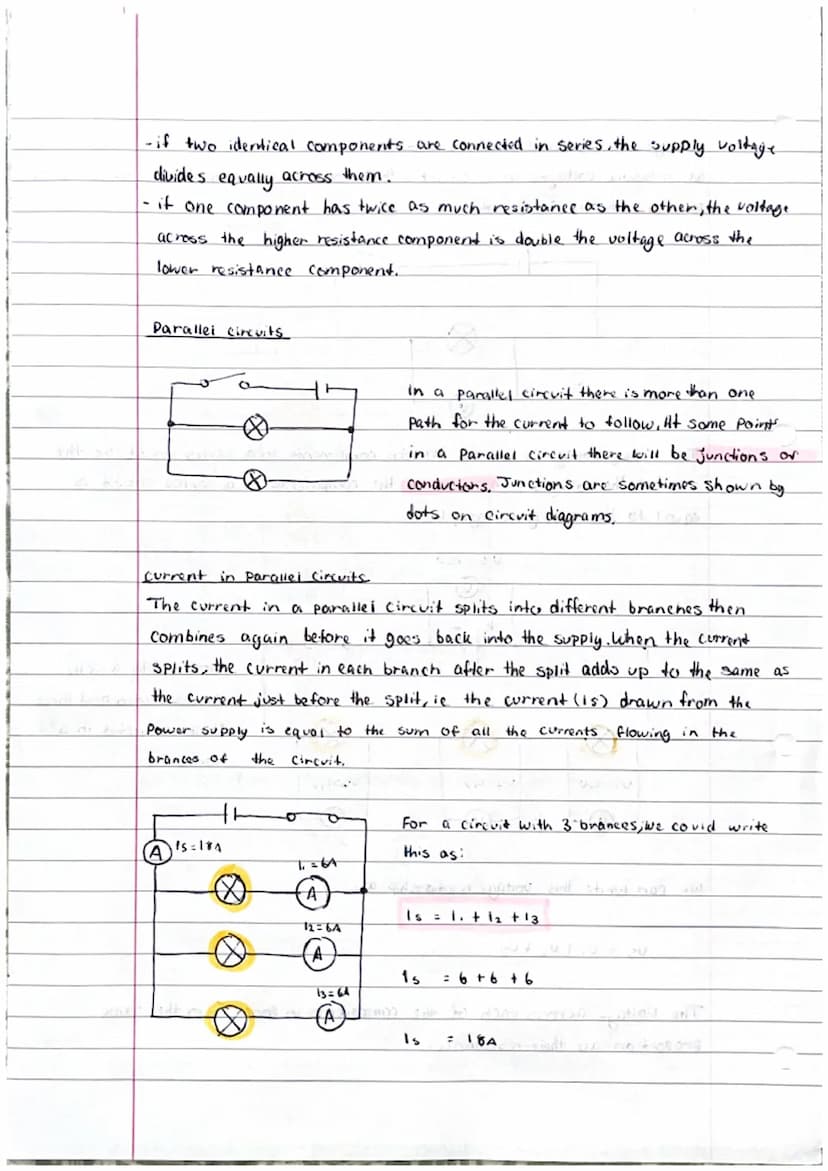 - if two identical components are connected in series, the supply voltage
divides equally across them.
- if one component has twice as much resistance as the other, the voltage
across the higher resistance component is double the voltage across the
lower resistance component.
Parallel circuits
In a parallel circuit there is more than one
path for the current to follow, At some points
in a parallel circuit there will be junctions or
conductors. Junctions are sometimes shown by
dots on circuit diagrams.
Current in Parallel Circuits
The current in a parallel circuit splits into different branches then
combines again before it goes back into the supply. When the current
splits, the current in each branch after the split adds up to the same as
the current just before the split, ie the current (Is) drawn from the
Power supply is equal to the sum of all the currents flowing in the
brances of the circuit.
For a circuit with 3 brances, we could write
this as:
A Is = 18A
I₁ = 6A
A
Is = I₁ + I₂ + I₃
I₂ = 6A
A
Is = 6 + 6 + 6
I₃ = 6A
A
Is = 18A